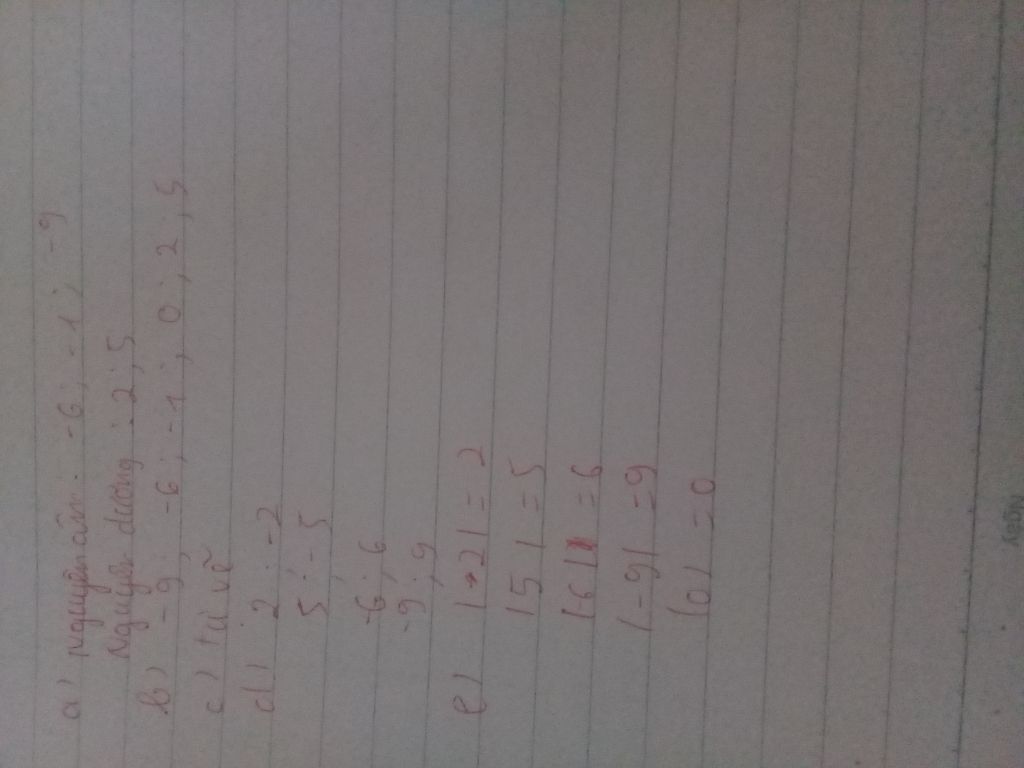 a) Nguyên âm: -6; -1; -9
Nguyên dương: 2; 5
b) -9; -6; -1; 0; 2; 5
c) tự vẽ
d) 2; -2
5; -5
-6; 6
-9; 9
e) |-2| = 2
|5| = 5
|-6| = 6
|-9| = 9
|0| = 0